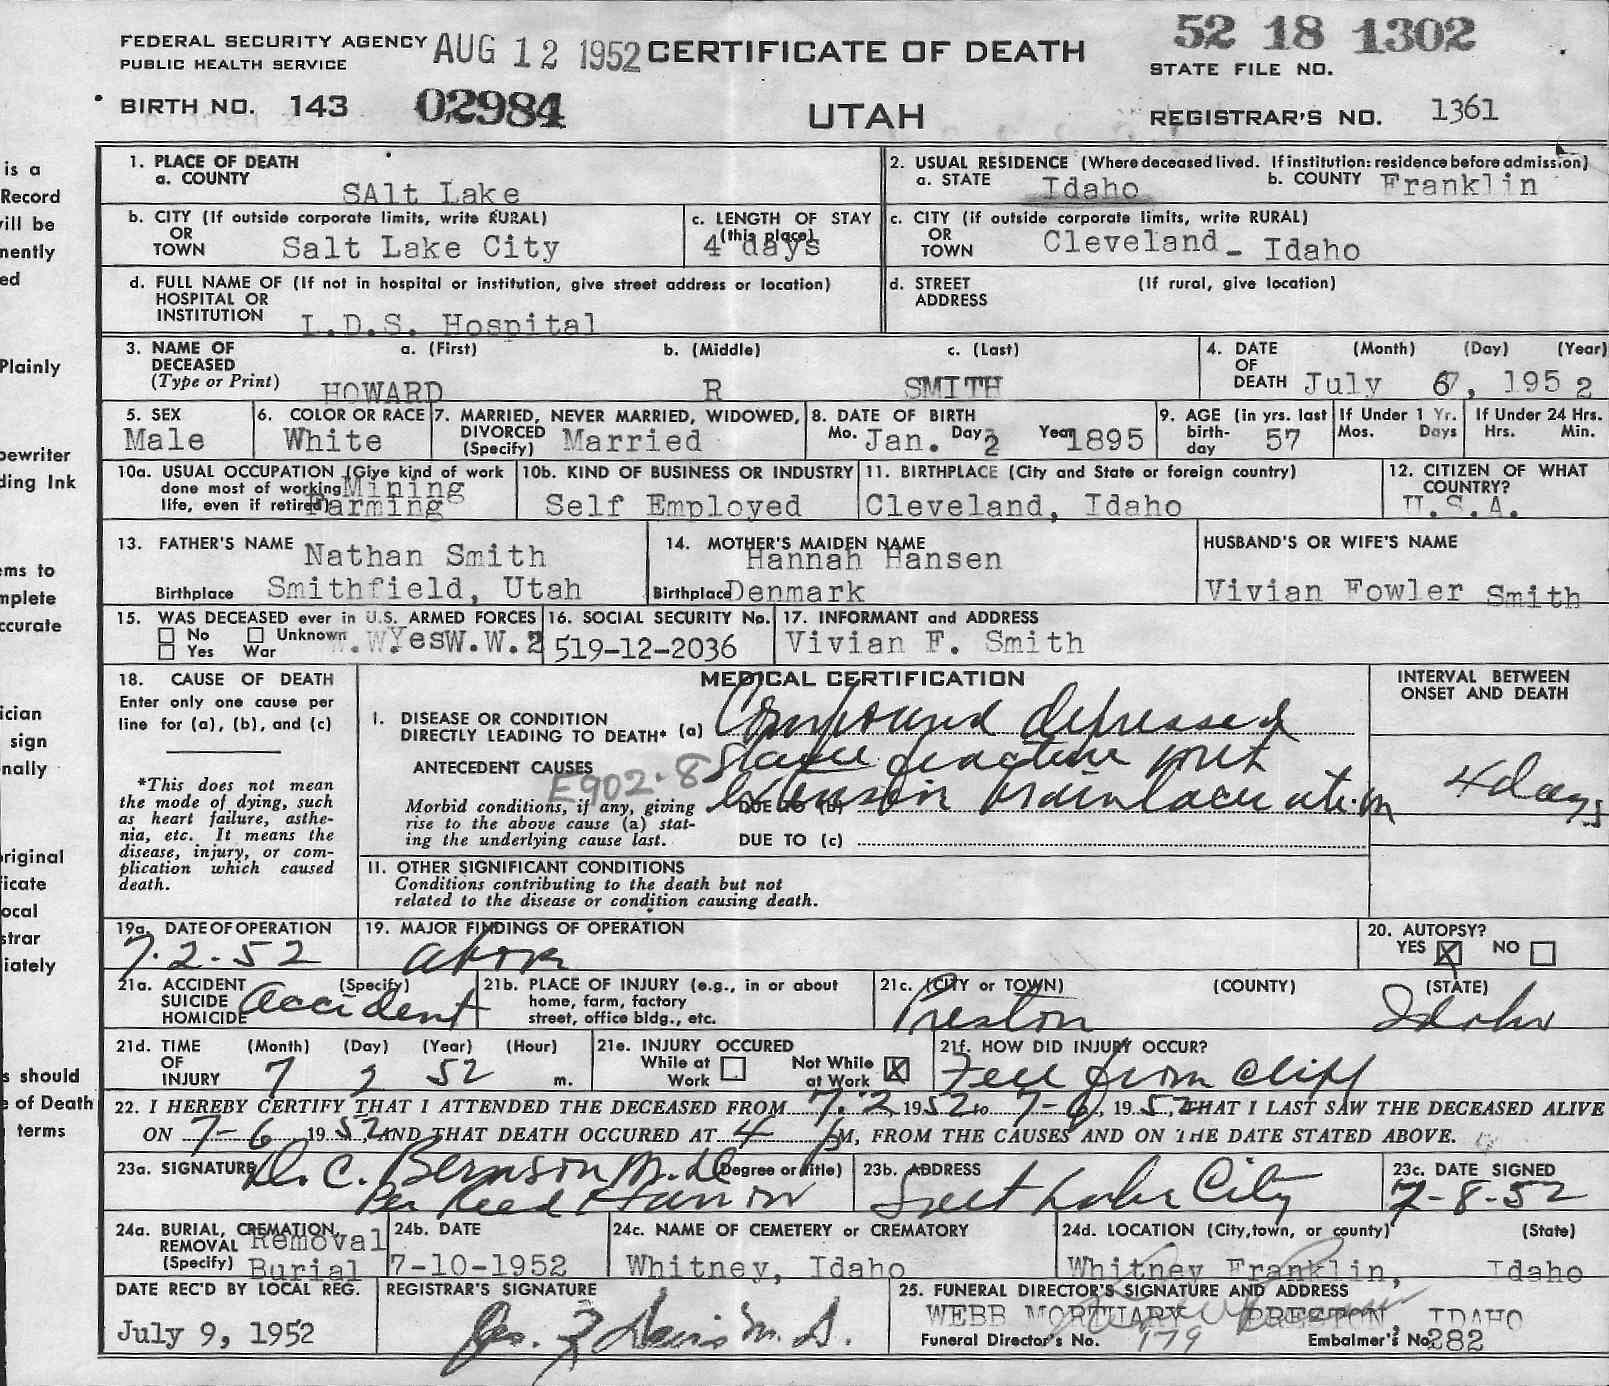 FEDERAL SECURITY AGENCY AUG 12 1952 CERTIFICATE OF DEATH 52 18 1302
PUBLIC HEALTH SERVICE STATE FILE NO.
BIRTH NO. 143 02984 UTAH REGISTRAR'S NO. 1361
is a
Record
will be
nently
ed
Plainly
pewriter
ding Ink
ems to
mplete
ccurate
ician
sign
nally
original
ficate
ocal
strar
iately
s should
e of Death
terms
1. PLACE OF DEATH
a. COUNTY
SAlt Lake
2. USUAL RESIDENCE (Where deceased lived. If institution: residence before admission)
a. STATE Idaho b. COUNTY Franklin
b. CITY (If outside corporate limits, write RURAL)
OR
TOWN Salt Lake City
c. LENGTH OF STAY
(this place)
4 days
c. CITY (if outside corporate limits, write RURAL)
OR
TOWN Cleveland - Idaho
d. FULL NAME OF (If not in hospital or institution, give street address or location)
HOSPITAL OR
INSTITUTION L.D.S. Hospital
d. STREET (If rural, give location)
ADDRESS
3. NAME OF a. (First) b. (Middle) c. (Last)
DECEASED
(Type or Print) HOWARD R SMITH
4. DATE (Month) (Day) (Year)
OF
DEATH July 6, 1952
5. SEX
Male
6. COLOR OR RACE
White
7. MARRIED, NEVER MARRIED, WIDOWED,
DIVORCED
(Specify) Married
8. DATE OF BIRTH
Mo. Jan. Day 2 Year 1895
9. AGE (in yrs. last
birth-
day 57
If Under 1 Yr.
Mos. Days
If Under 24 Hrs.
Hrs. Min.
10a. USUAL OCCUPATION (Give kind of work
done most of working Mining
life, even if retired) Farming
10b. KIND OF BUSINESS OR INDUSTRY
Self Employed
11. BIRTHPLACE (City and State or foreign country)
Cleveland, Idaho
12. CITIZEN OF WHAT
COUNTRY?
U.S.A.
13. FATHER'S NAME Nathan Smith
Birthplace Smithfield, Utah
14. MOTHER'S MAIDEN NAME
Hannah Hansen
Birthplace Denmark
HUSBAND'S OR WIFE'S NAME
Vivian Fowler Smith
15. WAS DECEASED ever in U.S. ARMED FORCES
No Unknown
Yes War Yes W.W.2
16. SOCIAL SECURITY No.
519-12-2036
17. INFORMANT and ADDRESS
Vivian F. Smith
18. CAUSE OF DEATH
Enter only one cause per
line for (a), (b), and (c)
*This does not mean
the mode of dying, such
as heart failure, asthe-
nia, etc. It means the
disease, injury, or com-
plication which caused
death.
MEDICAL CERTIFICATION
I. DISEASE OR CONDITION
DIRECTLY LEADING TO DEATH* (a) Compound depressed
skull fracture with
ANTECEDENT CAUSES E902.8
Morbid conditions, if any, giving DUE TO (b) brain laceration
rise to the above cause (a) stat-
ing the underlying cause last. DUE TO (c)
INTERVAL BETWEEN
ONSET AND DEATH
4 days
II. OTHER SIGNIFICANT CONDITIONS
Conditions contributing to the death but not
related to the disease or condition causing death.
19a. DATE OF OPERATION
7-2-52
19. MAJOR FINDINGS OF OPERATION
above
20. AUTOPSY?
YES X NO
21a. ACCIDENT (Specify)
SUICIDE
HOMICIDE Accident
21b. PLACE OF INJURY (e.g., in or about
home, farm, factory
street, office bldg., etc.
21c. (CITY or TOWN) (COUNTY) (STATE)
Preston Idaho
21d. TIME (Month) (Day) (Year) (Hour)
OF
INJURY 7 2 52 m.
21e. INJURY OCCURED
While at Work Not While at Work X
21f. HOW DID INJURY OCCUR?
Fell from cliff
22. I HEREBY CERTIFY THAT I ATTENDED THE DECEASED FROM 7-2 1952 to 7-6, 1952, THAT I LAST SAW THE DECEASED ALIVE
ON 7-6 1952, AND THAT DEATH OCCURED AT 4 P M, FROM THE CAUSES AND ON THE DATE STATED ABOVE.
23a. SIGNATURE D. C. Bernson M.D. (Degree or title)
Per Reed
23b. ADDRESS
Salt Lake City
23c. DATE SIGNED
7-8-52
24a. BURIAL, CREMATION,
REMOVAL Removal
(Specify) Burial
24b. DATE
7-10-1952
24c. NAME OF CEMETERY or CREMATORY
Whitney, Idaho
24d. LOCATION (City, town, or county) (State)
Whitney Franklin, Idaho
DATE REC'D BY LOCAL REG.
July 9, 1952
REGISTRAR'S SIGNATURE
Jas. Z Davis M.D.
25. FUNERAL DIRECTOR'S SIGNATURE AND ADDRESS
WEBB MORTUARY PRESTON, IDAHO
Funeral Director's No. 179 Embalmer's No. 282